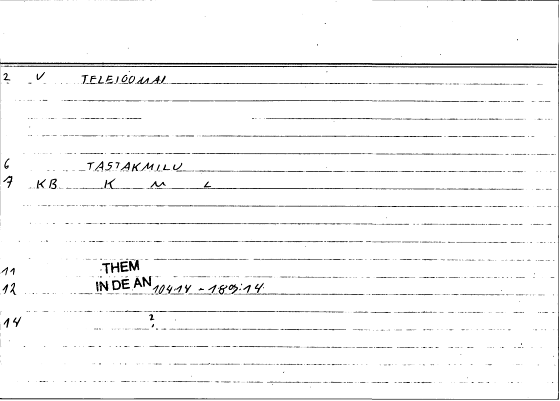 2 V TELEIOOMAI
6 TASTAKMILU
7 KB K M L
11 THEM
12 IN DE AN 10414 - 18
14 2